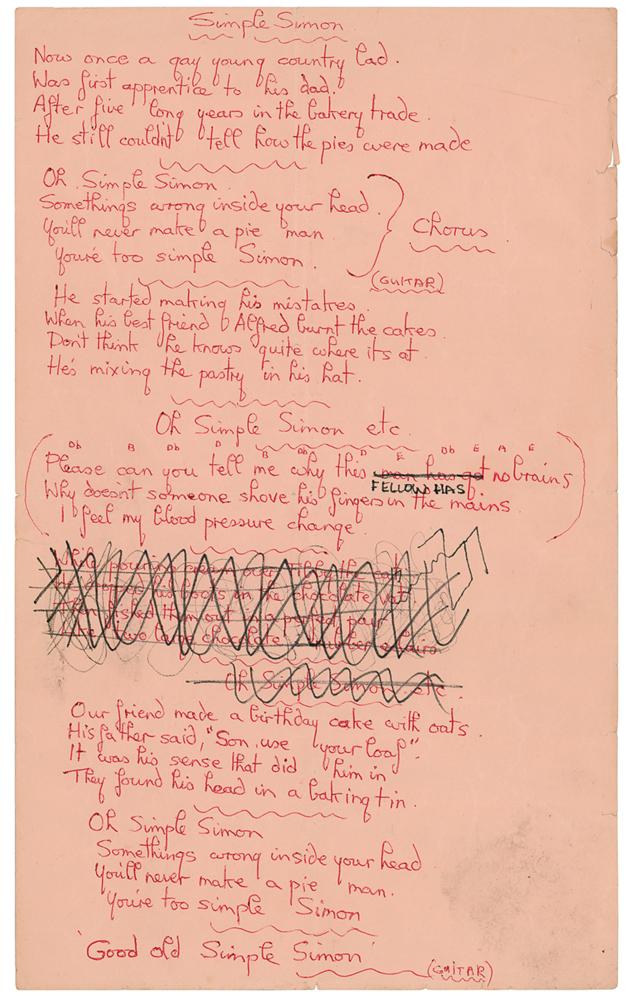 Simple Simon
Now once a gay young country lad.
Was first apprentice to his dad.
After five long years in the bakery trade.
He still couldn't tell how the pies were made
Oh Simple Simon.
Somethings wrong inside your head.
You'll never make a pie man.
You're too simple Simon.
Chorus
(GUITAR)
He started making his mistakes.
When his best friend Alfred burnt the cakes.
Don't think he knows quite where its at.
He's mixing the pastry in his hat.
Oh Simple Simon etc.
Db B Db D B Db D E Db E A E
Please can you tell me why this man has got no brains
FELLOW HAS
Why doesn't someone shove his fingers in the mains
I feel my blood pressure change.
While pouring over the
He dropped his boots in the chocolate vat
Then fished them out in a perfect pair
two large chocolate
Oh Simple Simon etc.
Our friend made a birthday cake with oats.
His father said, "Son, use your loaf".
It was his sense that did him in
They found his head in a baking tin.
Oh Simple Simon
Somethings wrong inside your head
You'll never make a pie man.
You're too simple Simon
'Good old Simple Simon'
(GUITAR)